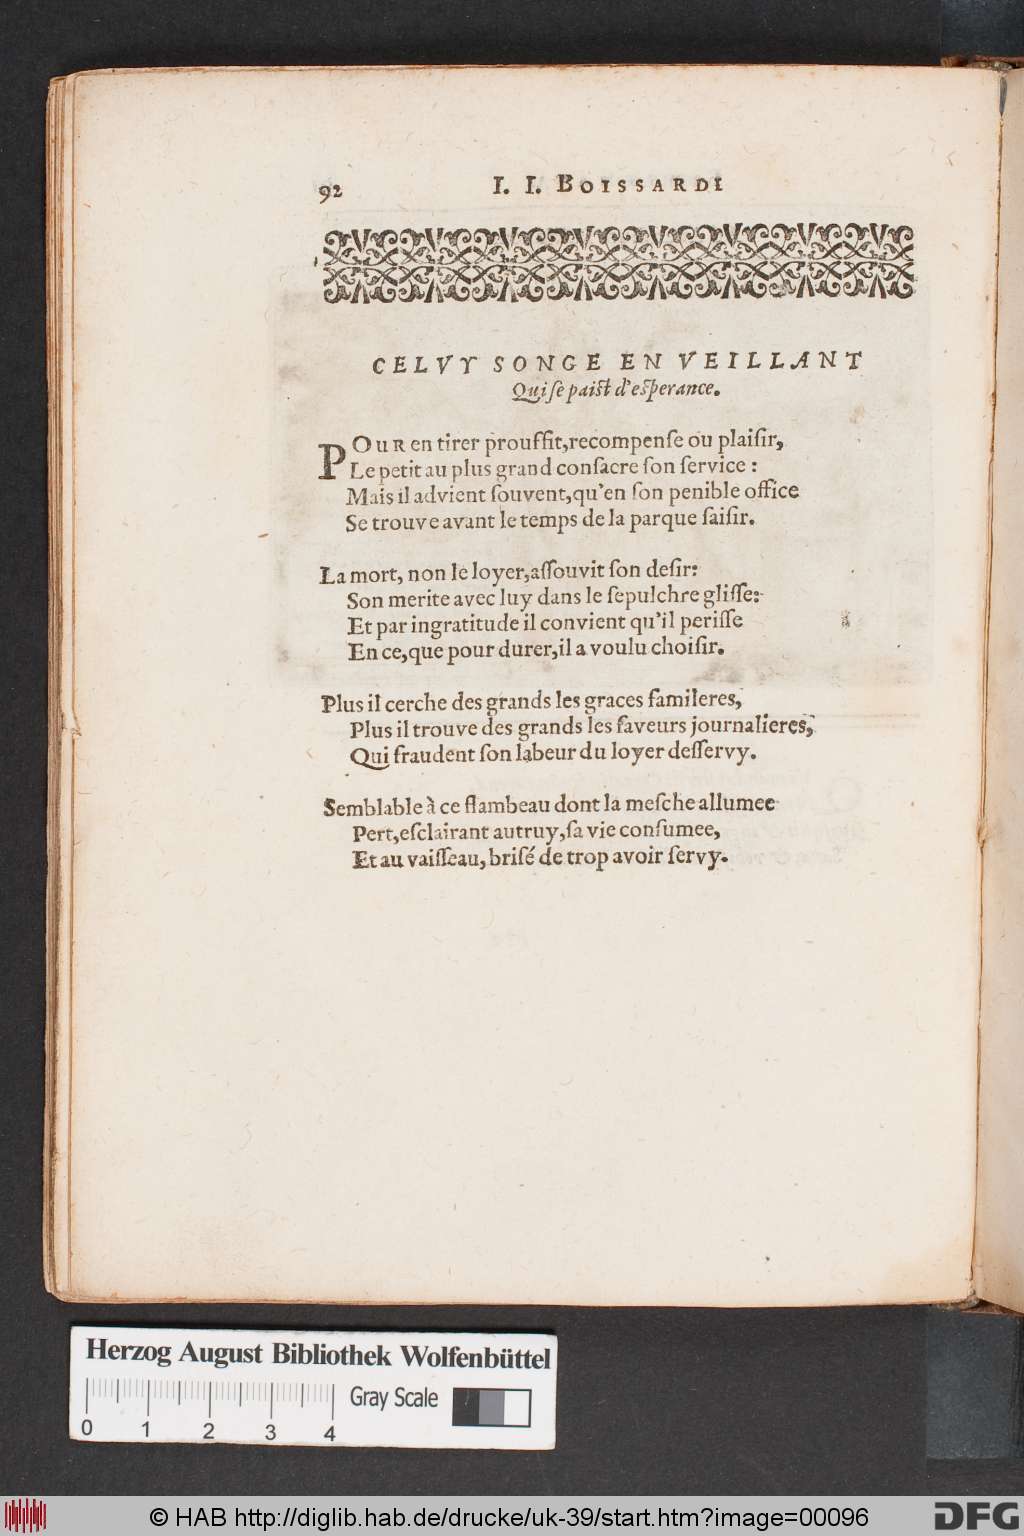 92
I. I. BOISSARDI
CELVY SONGE EN VEILLANT
Qui ſe paiſt d'eſperance.
POUR en tirer prouffit, recompenſe ou plaiſir,
Le petit au plus grand conſacre ſon ſervice :
Mais il advient ſouvent, qu'en ſon penible office
Se trouve avant le temps de la parque ſaiſir.
La mort, non le loyer, aſſouvit ſon deſir:
Son merite avec luy dans le ſepulchre gliſſe:
Et par ingratitude il convient qu'il periſſe
En ce, que pour durer, il a voulu choiſir.
Plus il cerche des grands les graces famileres,
Plus il trouve des grands les faveurs journalieres,
Qui fraudent ſon labeur du loyer deſſervy.
Semblable à ce flambeau dont la meſche allumee
Pert, eſclairant autruy, ſa vie conſumee,
Et au vaiſſeau, briſé de trop avoir ſervy.
Herzog August Bibliothek Wolfenbüttel
Gray Scale
0 1 2 3 4
© HAB http://diglib.hab.de/drucke/uk-39/start.htm?image=00096
DFG